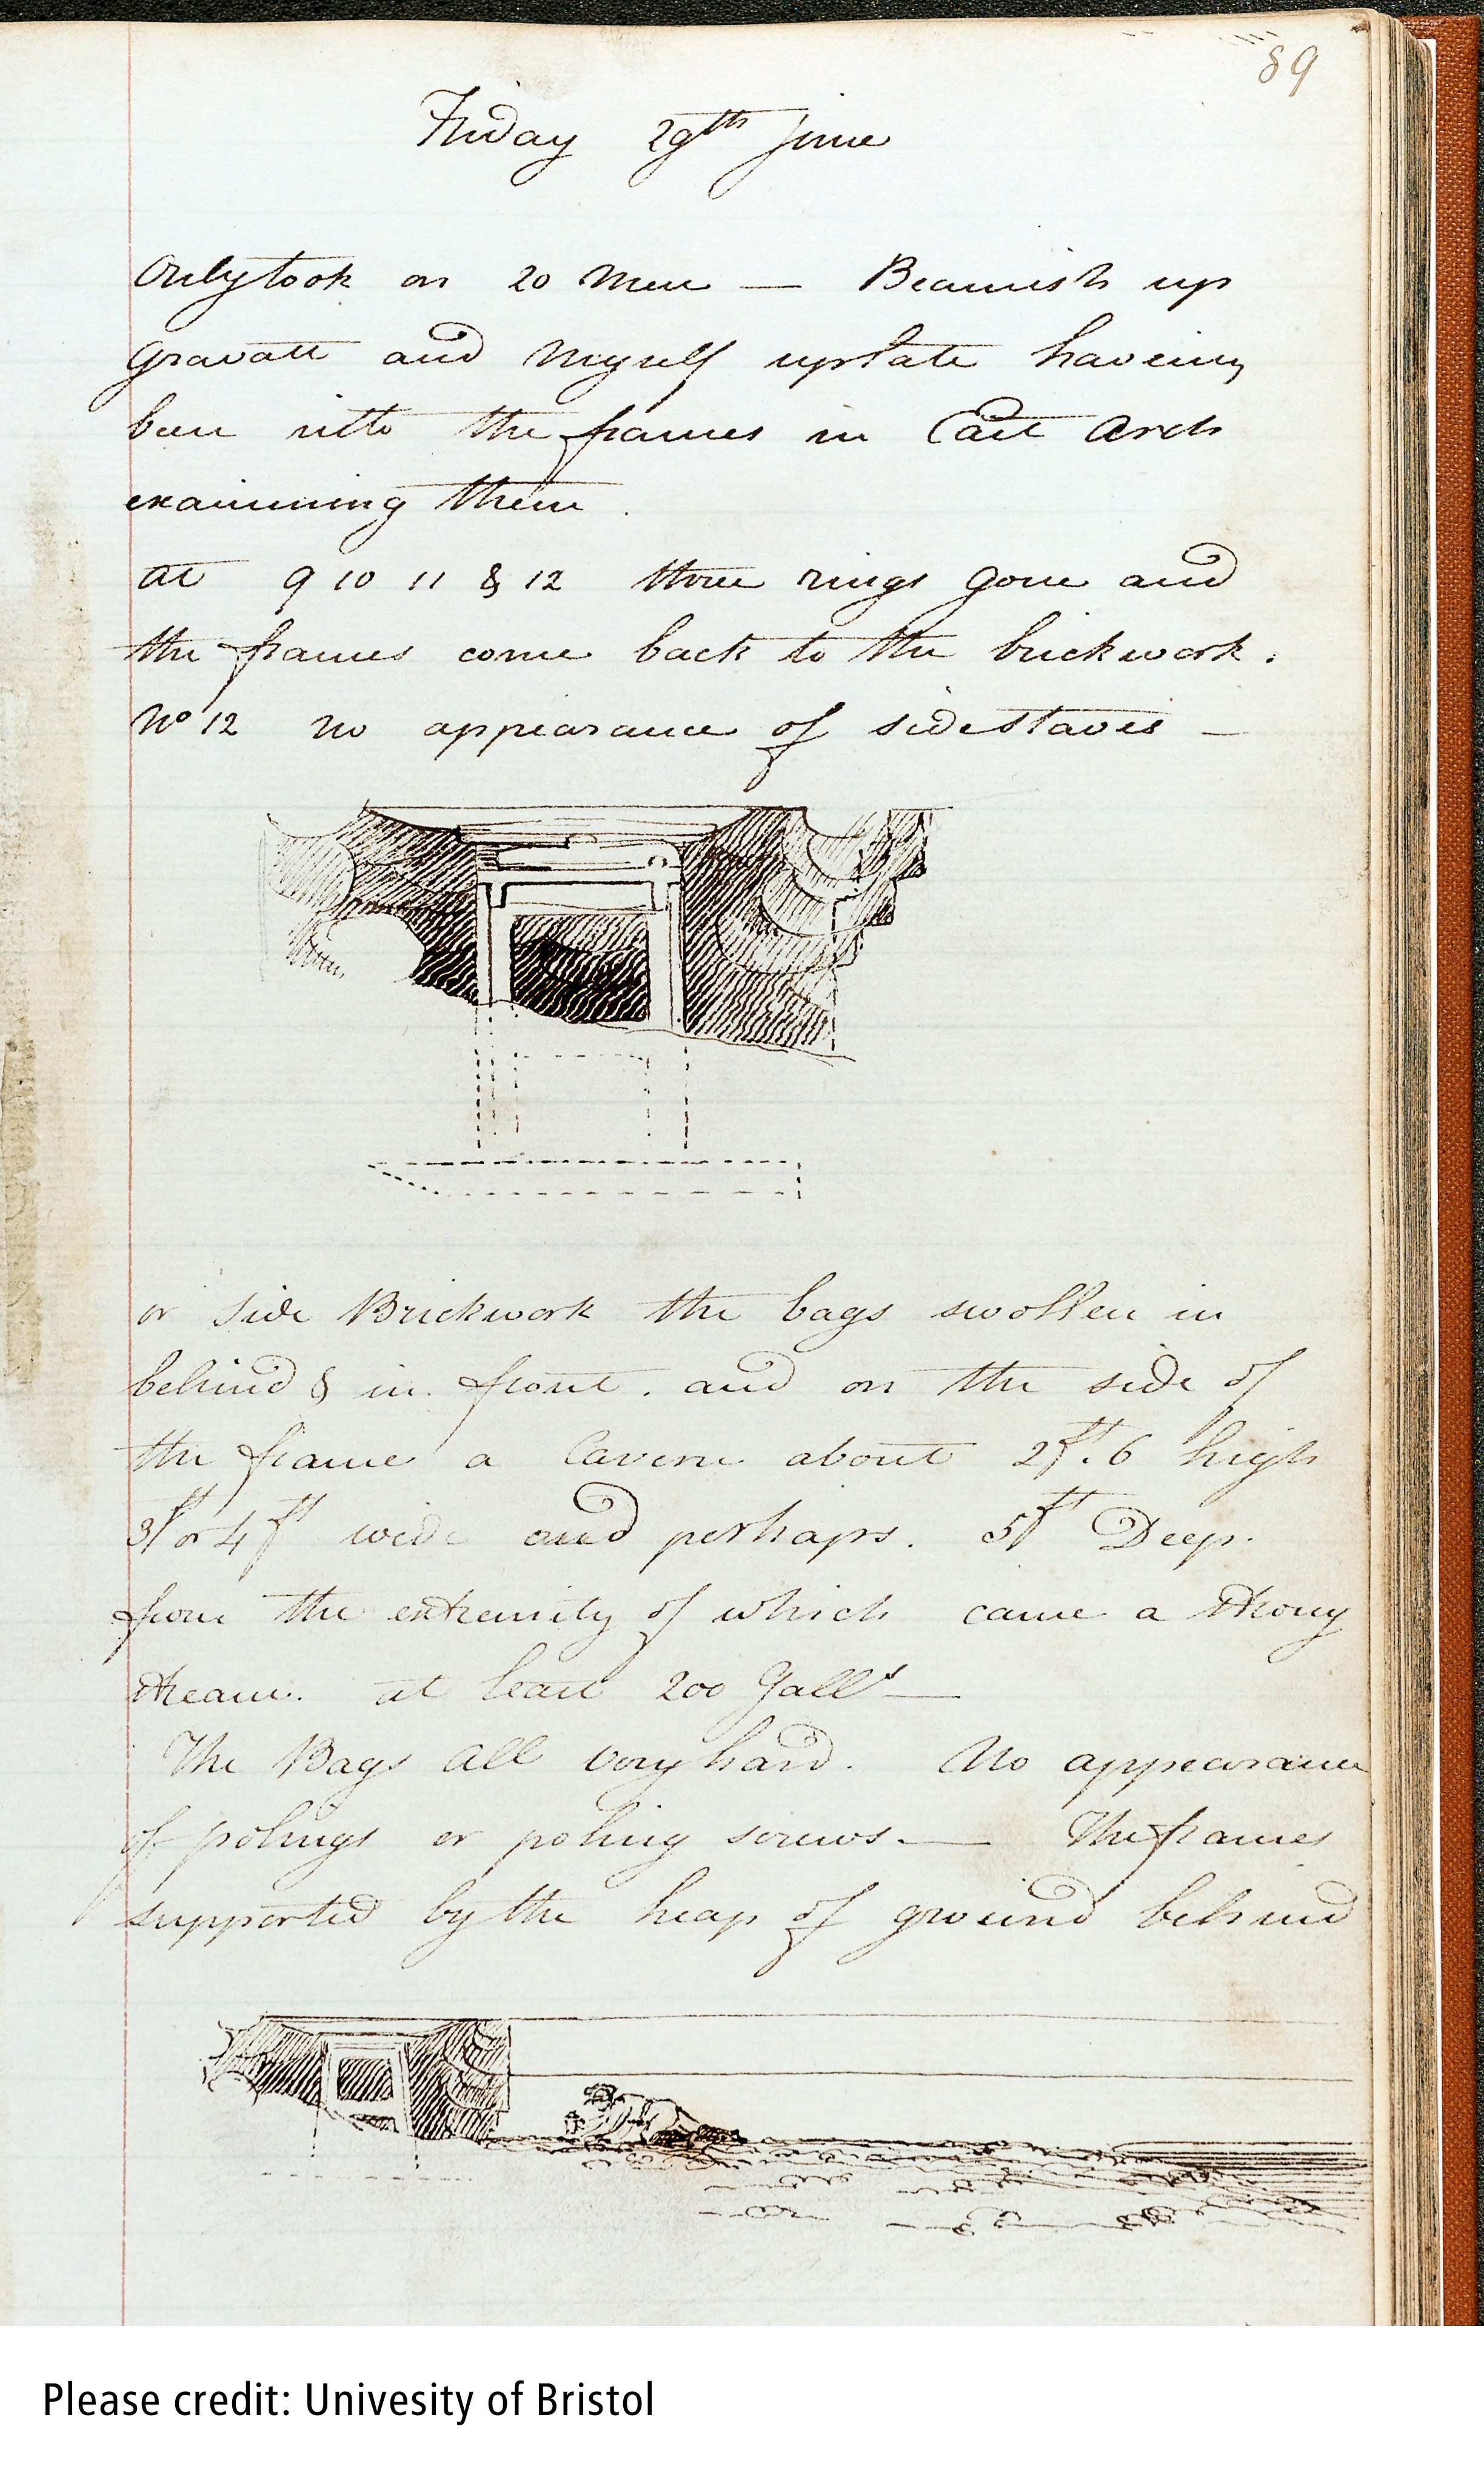 89
Friday 29th June
Only took on 20 Men — Beamish up
Gravatt and Myself up late having
been into the frames in East Arch
examining them.
at 9 10 11 & 12 three rings gone and
the frames come back to the brickwork.
No 12 no appearance of side staves —
or side Brickwork the bags swollen in
behind & in front. and on the side of
the frame a Cavern about 2ft. 6 high
3ft or 4ft wide and perhaps. 5ft Deep.
from the extremity of which came a strong
stream. at least 200 Galls —
The Bags all very hard. No appearance
of polings or poling screws. — The frames
supported by the heap of ground behind
Please credit: Univesity of Bristol